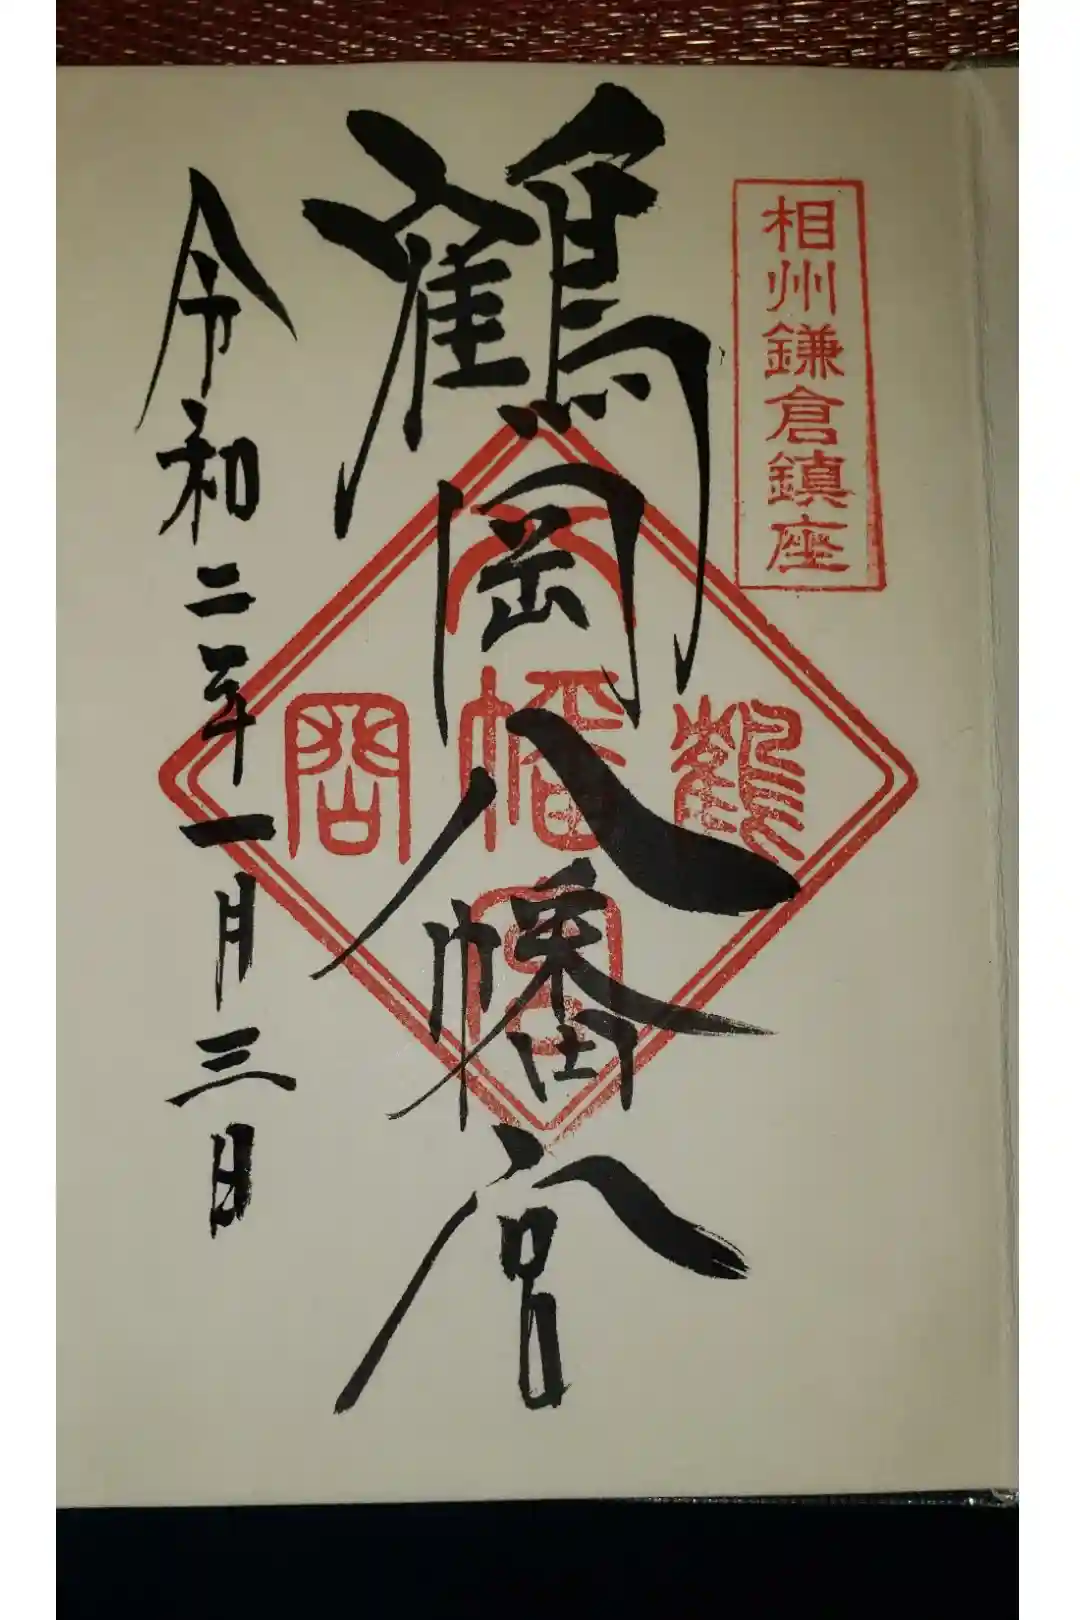 相州鎌倉鎮座
鶴岡八幡宮
鶴岡
八幡宮
令和二年一月三日